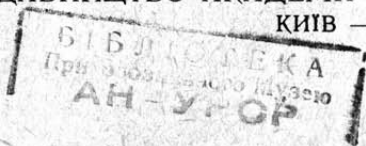 КИЇВ —
БІБЛІОТЕКА
Природознавчого Музею
АН-УРСР